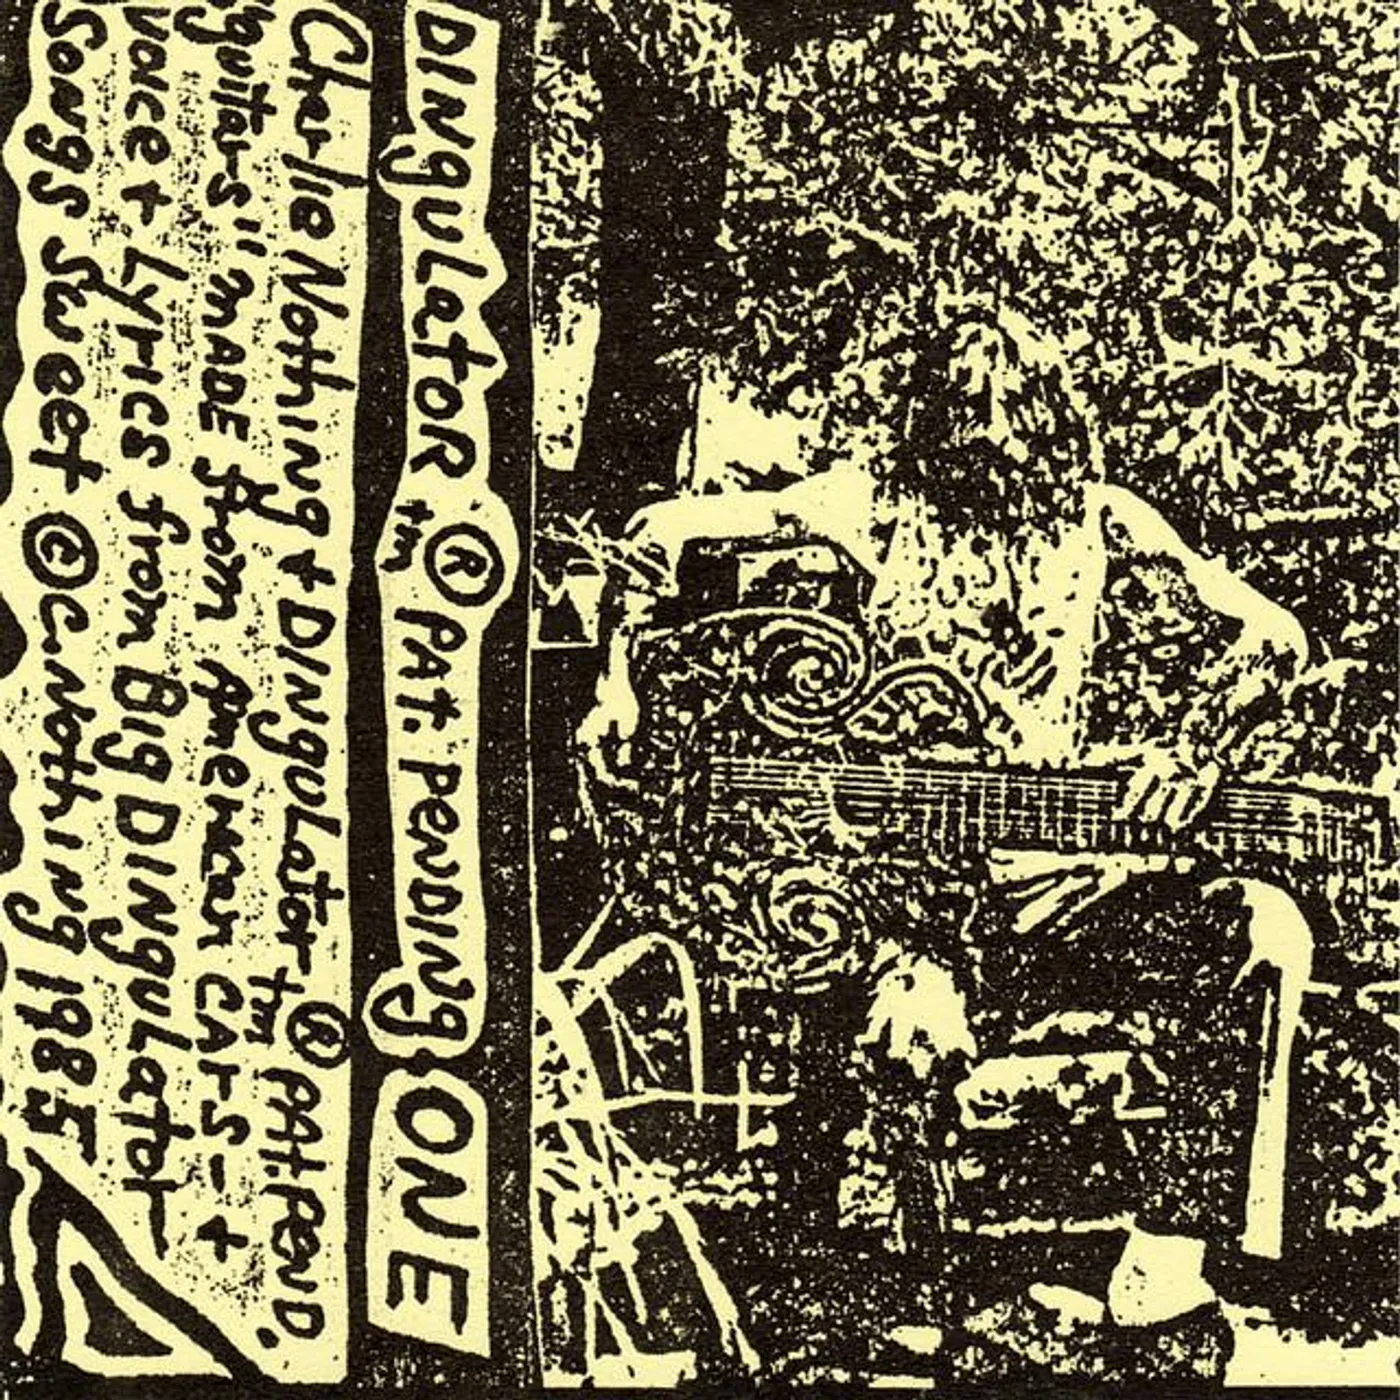 DINGULATOR ® tm PAT. PENDING ONE
Charlie Nothing + DINGULATOR ® tm PAT. PEND.
"guitars" MADE from American CARS - +
voice + Lyrics from Big DINGULATOR
Songs Sweet © C. Nothing 1985